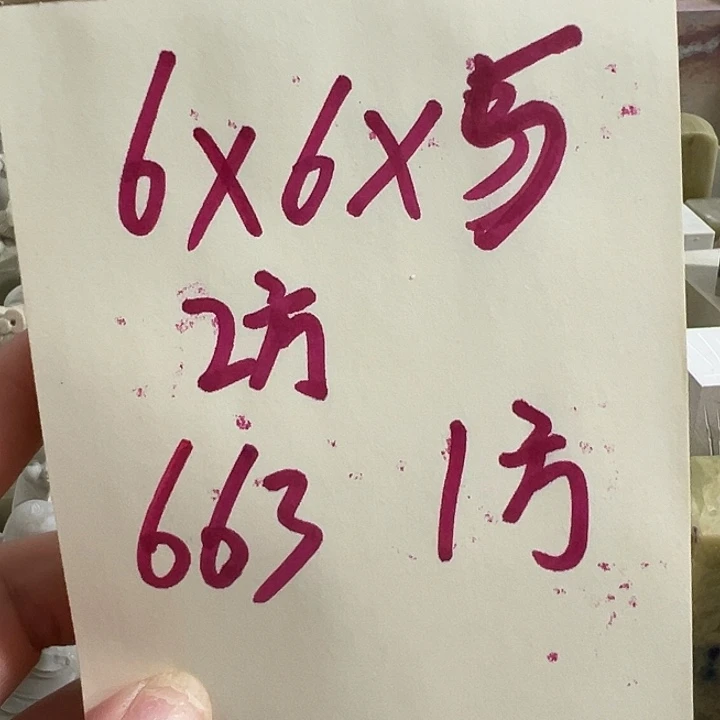 6×6×5
2方
663 1方